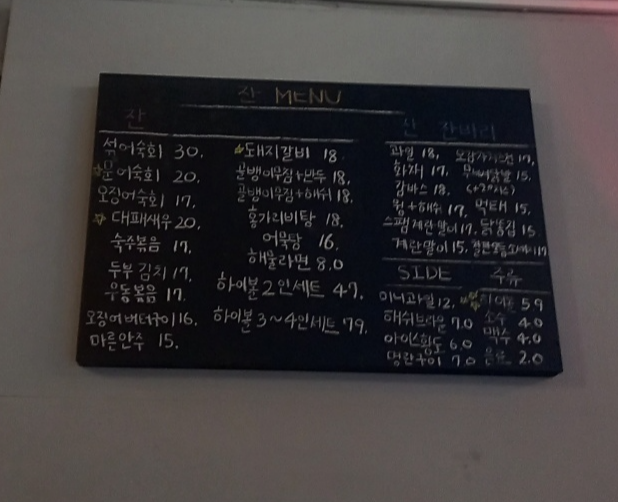 잔 MENU
잔
섞어숙회 30.
문어숙회 20.
오징어숙회 17.
대패새우 20.
숙주볶음 17.
두부김치 17.
우동볶음 17.
오징어버터구이 16.
마른안주 15.
돼지갈비 18
골뱅이무침+만두 18.
골뱅이무침+해쉬 18.
홍가리비탕 18.
어묵탕 16.
해물라면 8.0
하이볼 2인세트 47.
하이볼 3~4인세트 79.
잔
과일 18,
화채 17,
감바스 18.
윙+해쉬 17.
스팸계란말이 17.
계란말이 15.
17,
15,
먹태 15,
닭똥집 15
17
SIDE
미니과일 12,
해쉬브라운 7.0
아이스황도 6.0
명란구이 7.0
주류
하이볼 5.9
소주 4.0
맥주 4.0
음료 2.0